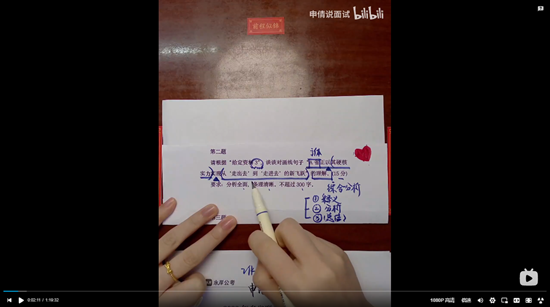 申倩说面试 bilibili
第二题
谁
请根据“给定资料2”,谈谈对画线句子“
以其硬核
实力实现从‘走出去’到‘走进去’的新飞跃”的理解。(15分)
要求:分析全面,条理清晰,不超过300字。
综合分析
① 释义
② 分析
③ (总结)
谁
公考
申
0:02:11 / 1:19:32
1080P 高清
倍速